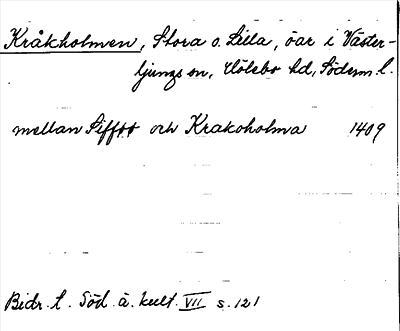 Kråkholmen, Stora o. Lilla, öar i Väster-
ljungs sn, Hölebo hd, Söderm. l.
mellan Siffttt och Krakoholma 1409
Bidr. t. Söd. ä. kult. VII s. 121